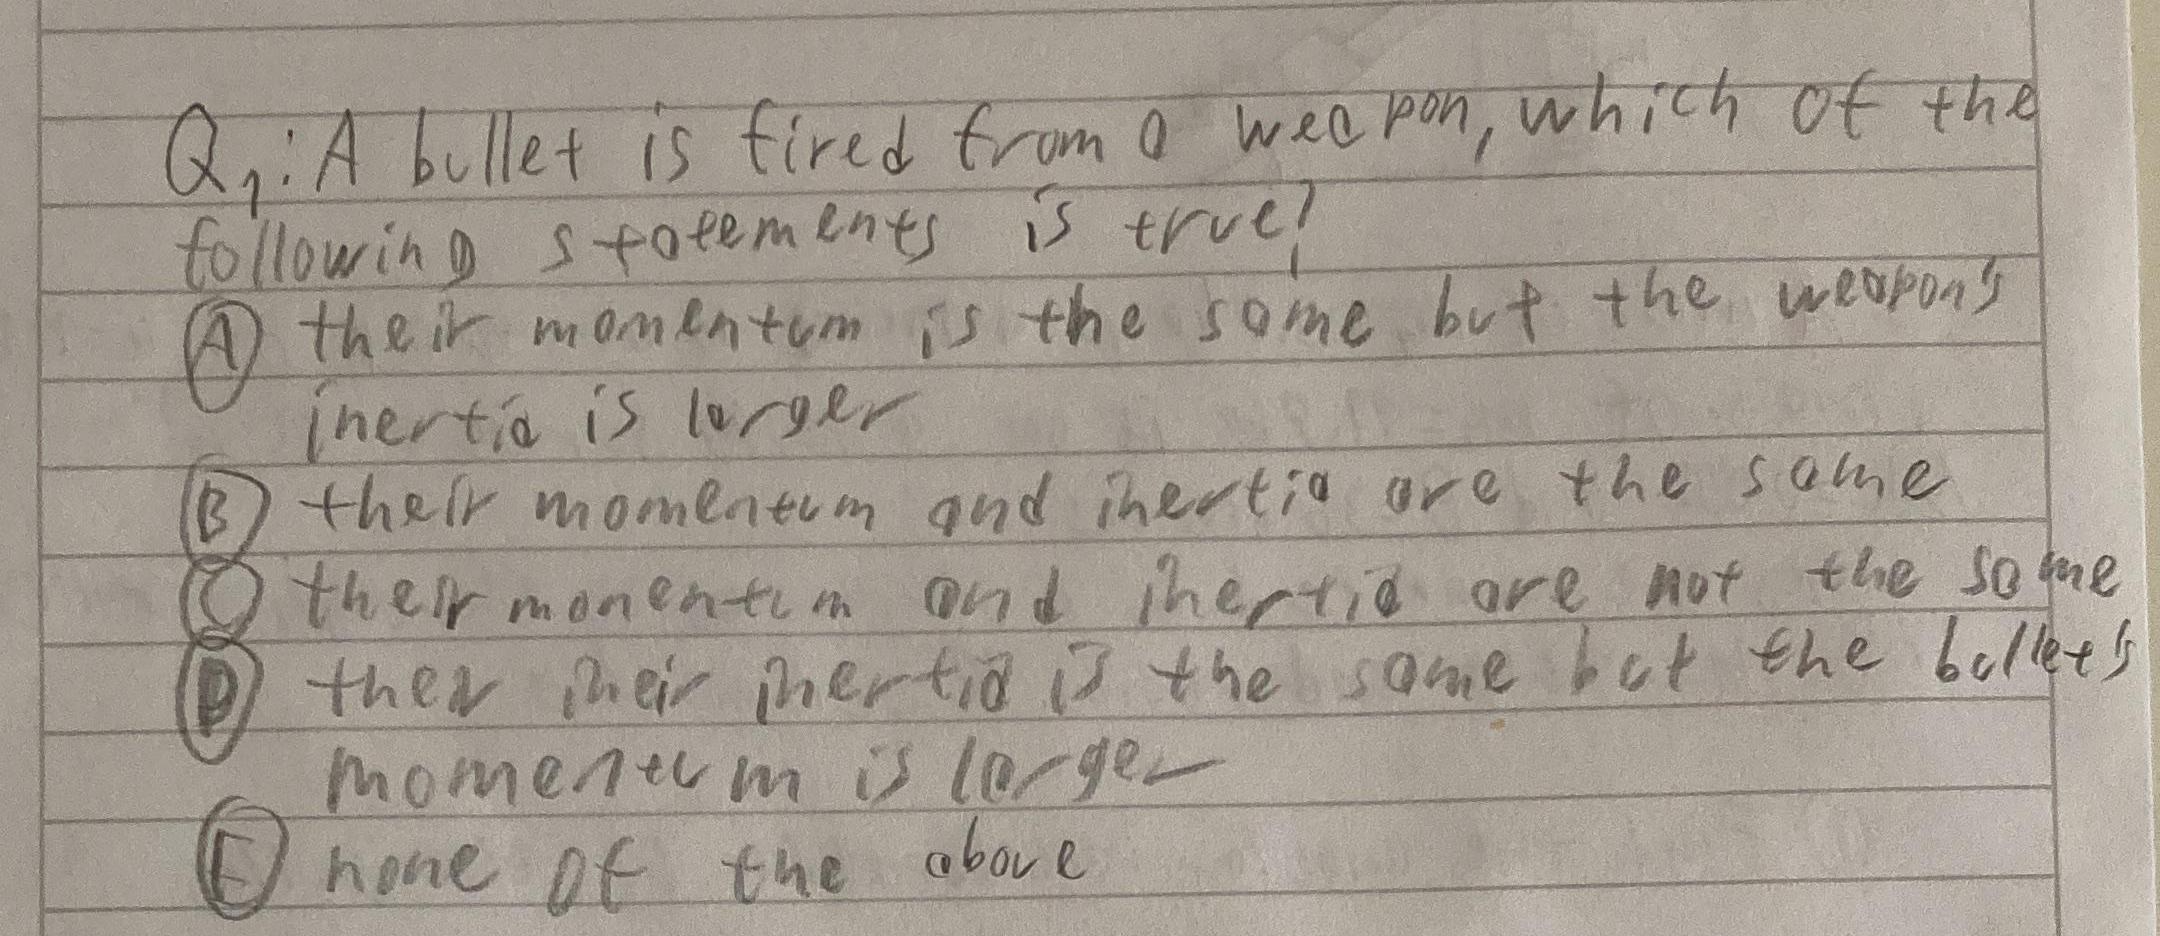 Q1: A bullet is fired from a weapon, which of the
following statements is true?
A their momentum is the same but the weapon's
inertia is larger
B their momentum and inertia are the same
C their momentum and inertia are not the same
D their inertia is the same but the bullet's
momentum is larger
E none of the above